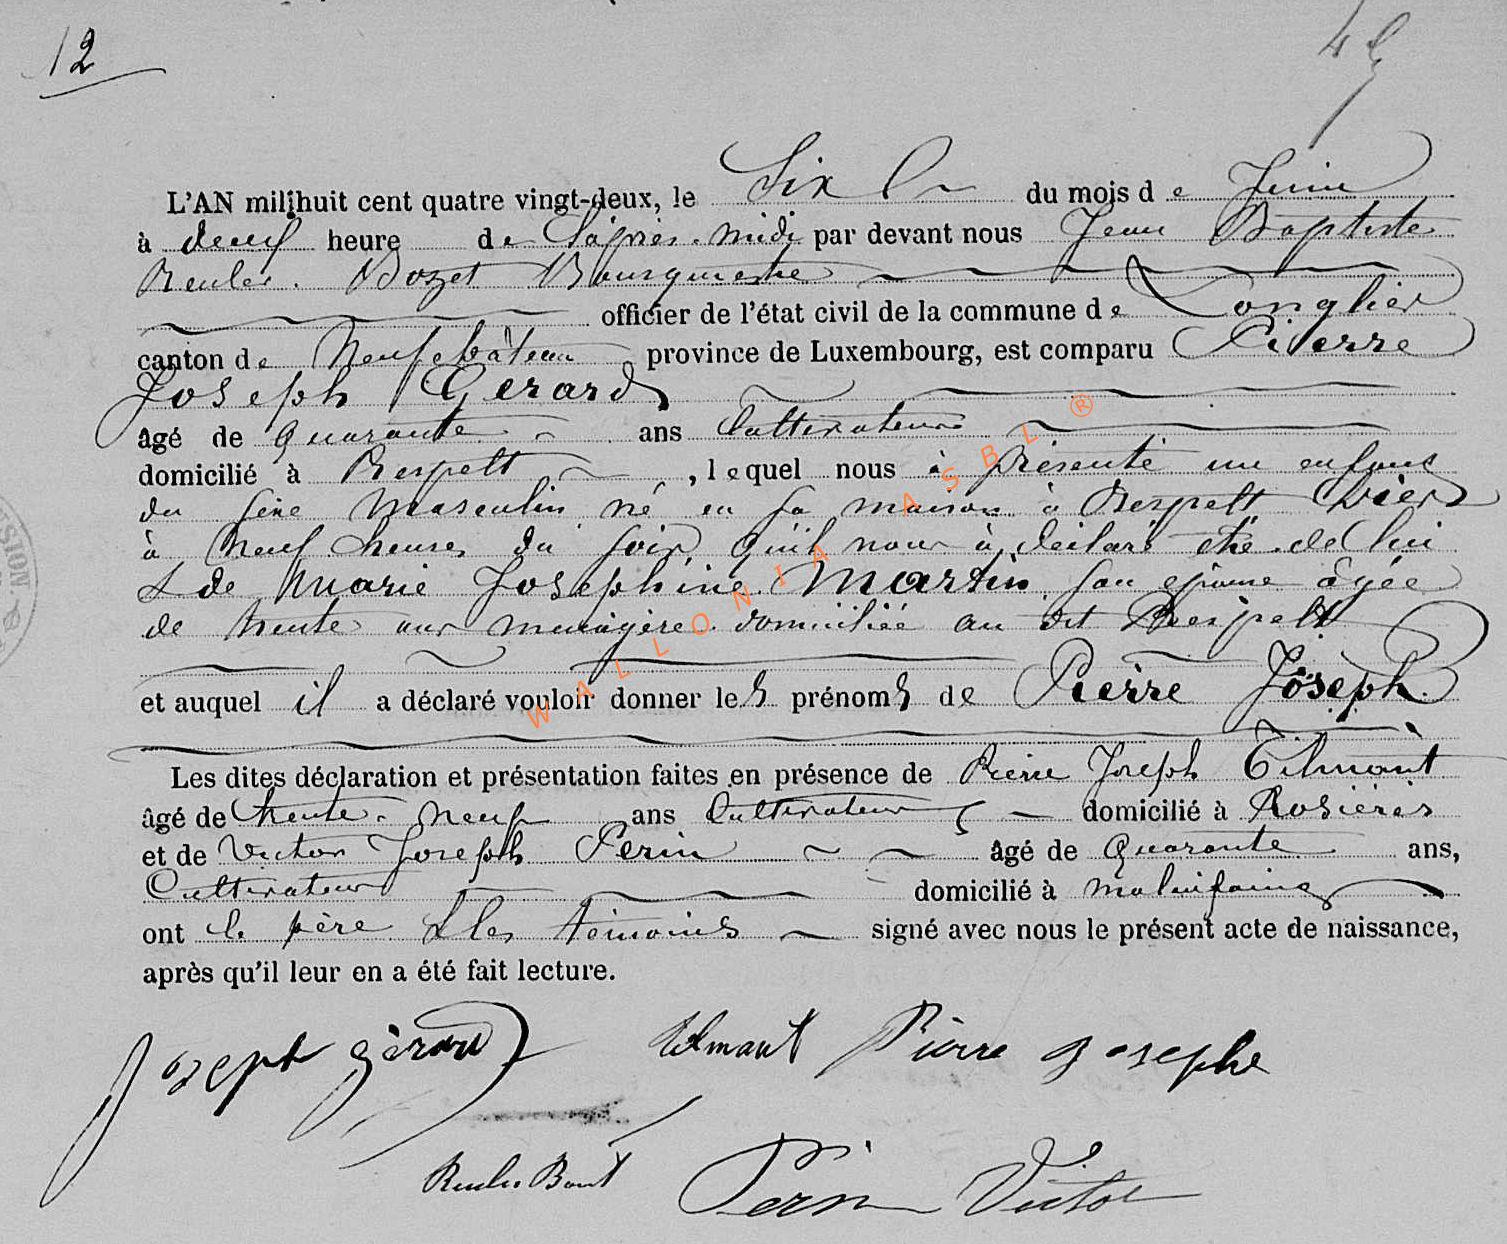 12
L'AN mil huit cent quatre vingt-deux, le Six du mois de Juin
à deux heure de l'après-midi par devant nous Jean Baptiste
Reuler. Bozet Bourgmestre
officier de l'état civil de la commune de Longlier
canton de Neufchâteau province de Luxembourg, est comparu Pierre
Joseph Gerard
âgé de quarante ans Cultivateur
domicilié à Respelt, lequel nous à présenté un enfant
du sexe masculin né en sa maison à Respelt hier
à neuf heures du soir qu'il nous à déclaré être de lui
& de Marie Josephine Martin son épouse âgée
de trente ans menagère domiciliée au dit Respelt
et auquel il a déclaré vouloir donner les prénoms de Pierre Joseph
Les dites déclaration et présentation faites en présence de Pierre Joseph Tilmant
âgé de trente-neuf ans Cultivateur domicilié à Rosières
et de Victor Joseph Perin âgé de Quarante ans,
Cultivateur domicilié à malmifaing
ont le père & les témoins signé avec nous le présent acte de naissance,
après qu'il leur en a été fait lecture.
Joseph gérard Tilmant Pierre Josephe
Perin Victor
WALLONIA ASBL ®